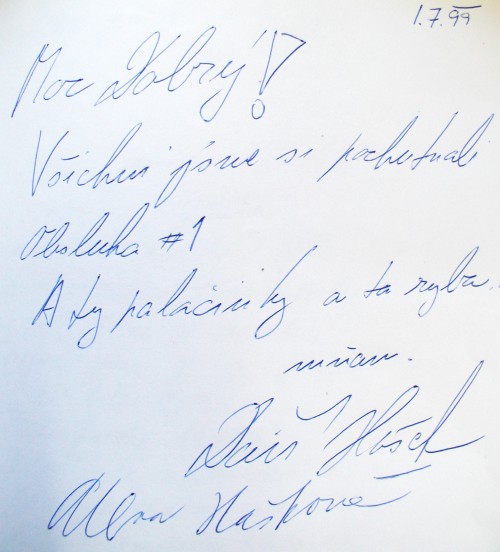 1.7.99
Moc Dobrý!
Všichni jsme si pochutnali
Obsluha #1
A ty palačinky a ta ryba.
mňam.
Hašek
Alena Hašková